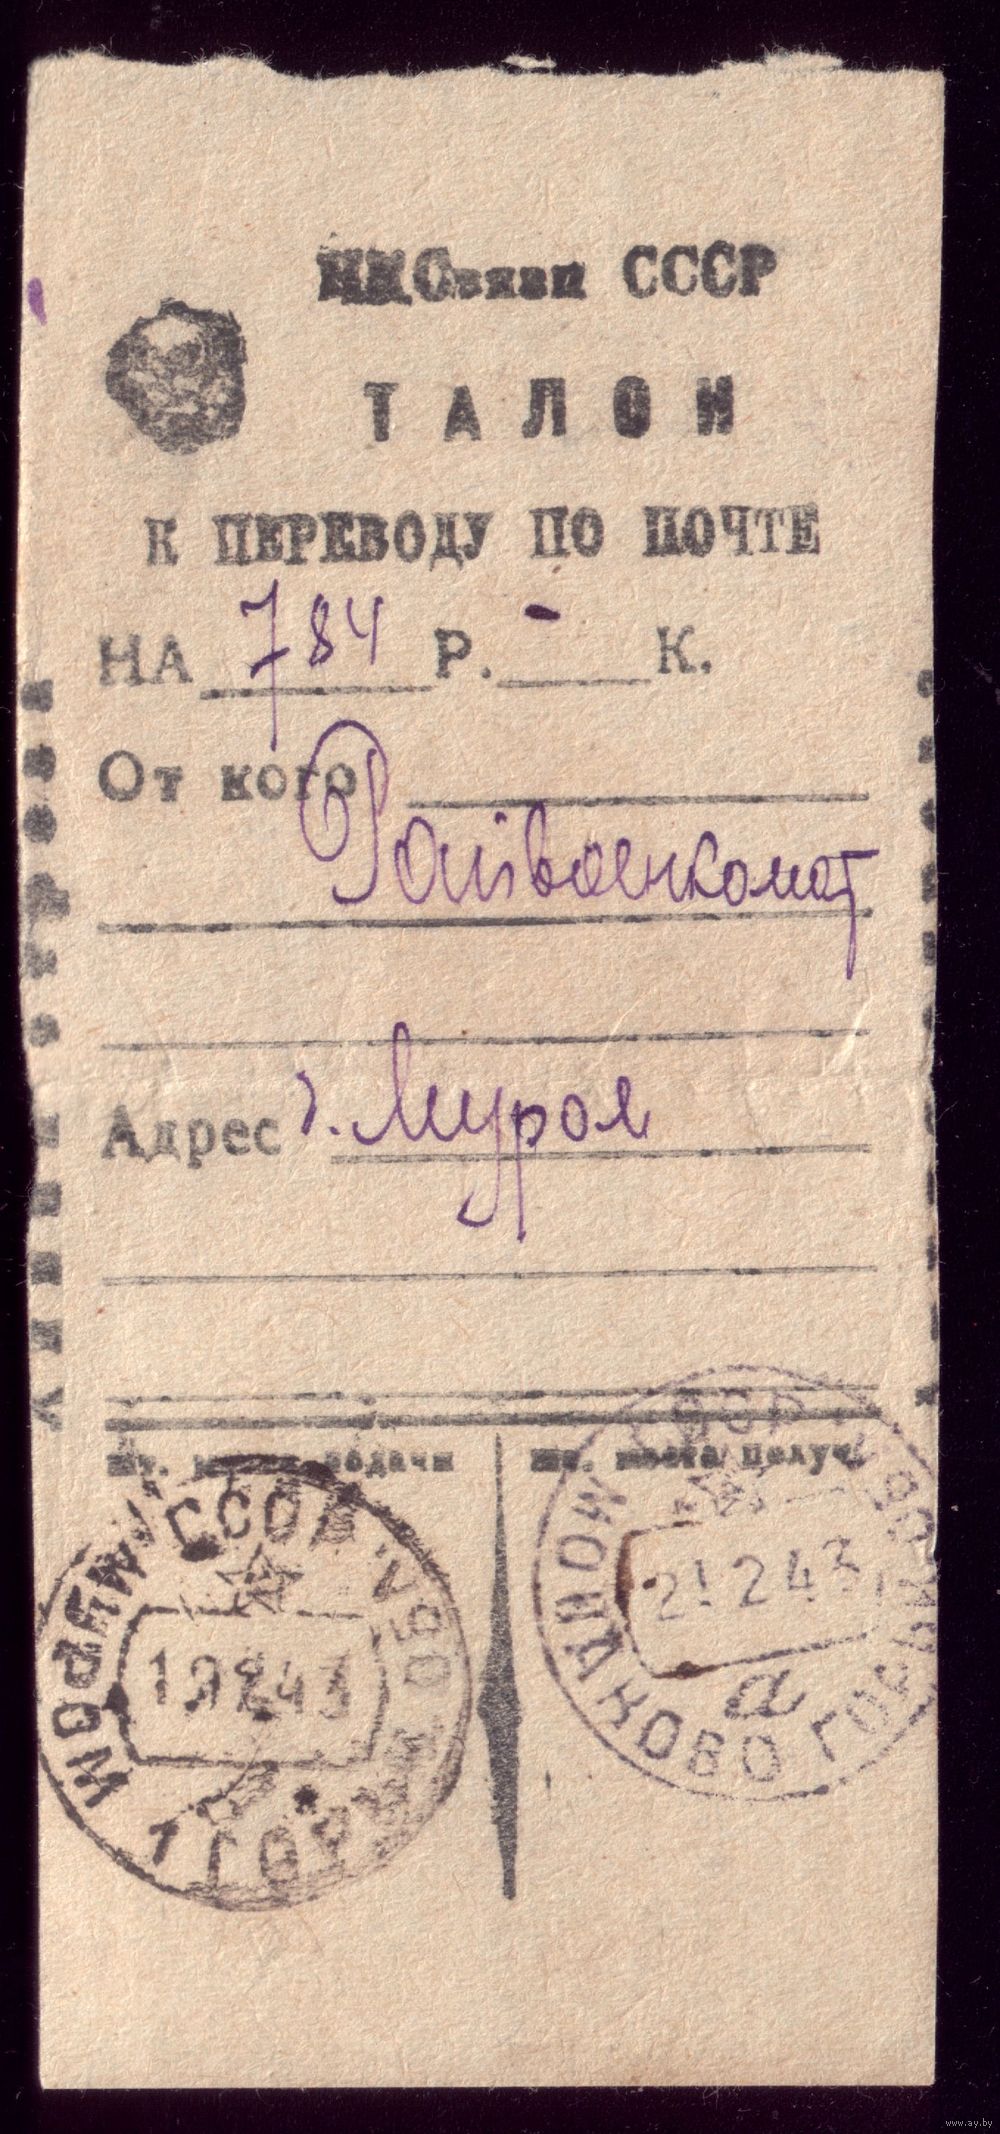 НКСвязи СССР
ТАЛОН
К ПЕРЕВОДУ ПО ПОЧТЕ
НА 784 Р. - К.
От кого
Райвоенкомат
Адрес г. Муром
шт. места подачи
шт. места получ.
МУРОМ СССР ГОРЬК. ОБЛ.
19 2 43
СССР ГОРЬК
21 2 43
а
www.ay.by